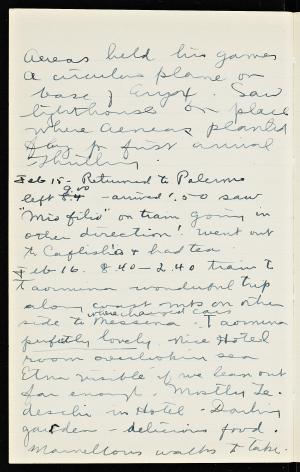 Aeneas held his games
a circulus plane on
base of Eryx. Saw
lighthouse on place
where Aeneas planted
flag for first arrival
Thrilling.
Feb 15 - Returned to Palermo
left 9.00 - arrived 1.50 saw
"Mio filio" on train going in
other direction! Went out
to Caflish's & had tea.
Feb 16. 8.40 - 2.40 train to
Taormina wonderful trip
along coast mts on other
side to Messina. where changed cars Taormina
perfectly lovely. Nice Hotel
room overlookin sea
Etna visible if we lean out
far enough. Mostly Te-
deschi in Hotel - Darling
garden - delicious food.
Marvellous walks to take.